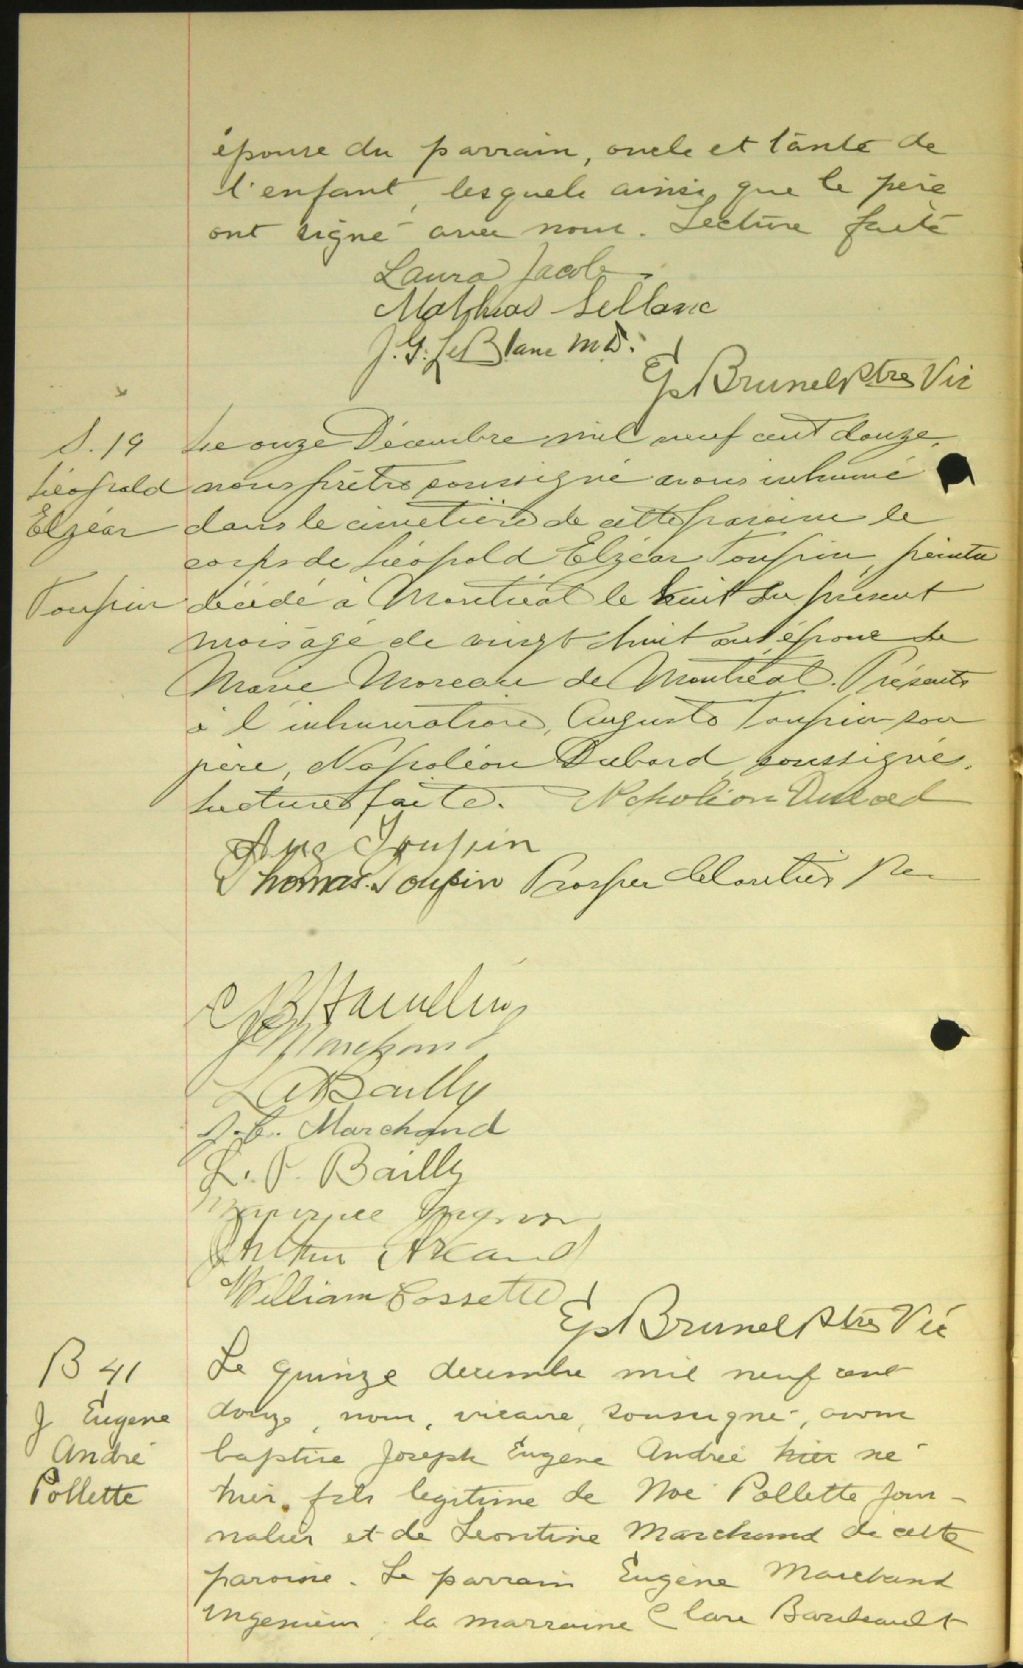 épouse du parrain, oncle et tante de
l'enfant, lesquels ainsi que le père
ont signé avec nous. Lecture faite
Laura Jacob
Mathias Leblanc
J. G. LeBlanc M.D.
Ep Brunel Ptre Vic
S. 19
Léopold
Elzéar
Toupin
Le onze Décembre mil neuf cent douze,
nous prêtre soussigné avons inhumé
dans le cimetière de cette paroisse le
corps de Léopold Elzéar Toupin, peintre
décédé à Montréal le huit du présent
mois âgé de vingt huit ans époux de
Marie Moreau de Montréal. Présents
à l'inhumation, Auguste Toupin son
père, Napoléon Dubord, soussignés.
Lecture faite. Napoléon Dubord
Aug Toupin
Thomas Toupin Prosper Cloutier Ptre
Hamelin
Marchand
Bailly
Marchand
L. P. Bailly
Arthur Arcand
William Cossette
Ep Brunel Ptre Vic
B 41
J Eugene
André
Pollette
Le quinze decembre mil neuf cent
douze, nous, vicaire, soussigné, avons
baptise Joseph Eugène André hier né
hier, fils legitime de Noé Pollette jour-
nalier et de Leontine Marchand de cette
paroisse. Le parrain Eugène Marchand
ingenieur, la marraine Clara Baribeault